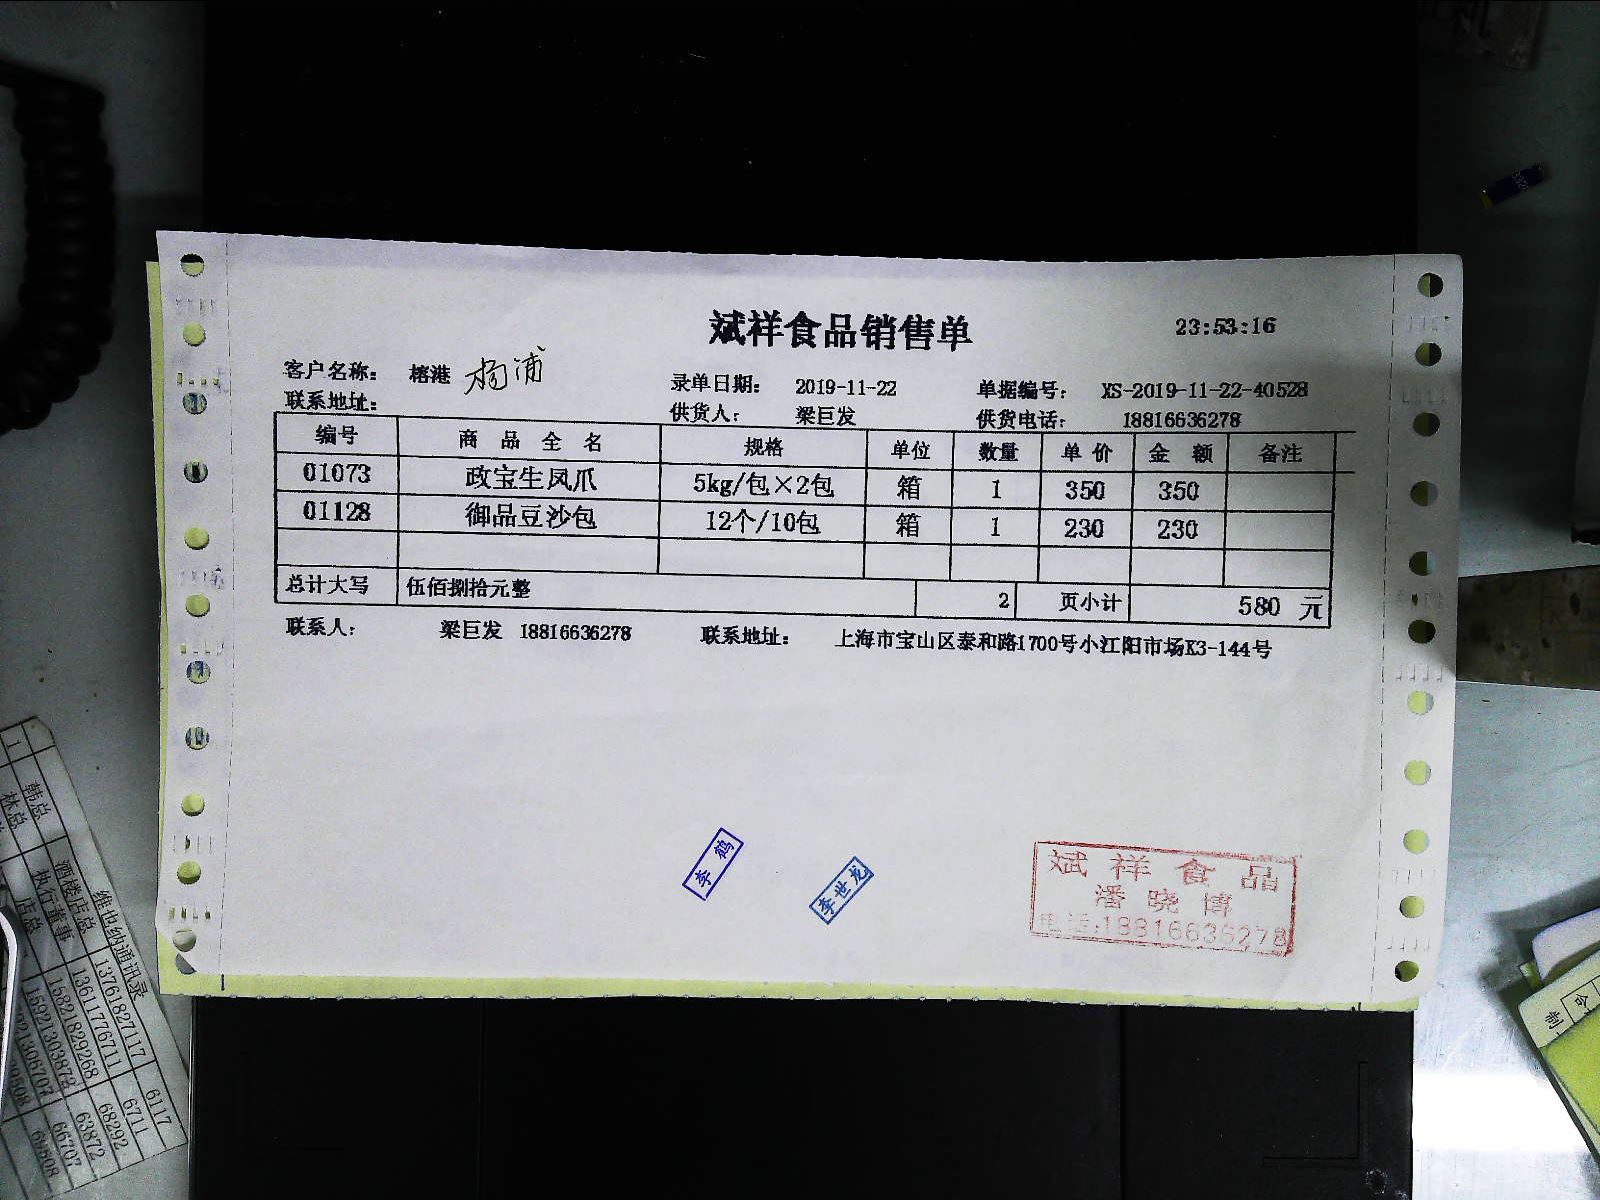 斌祥食品销售单
23:53:16
客户名称： 榕港 杨浦
录单日期： 2019-11-22
单据编号： XS-2019-11-22-40528
联系地址：
供货人： 梁巨发
供货电话： 18816636278
编号 商品全名 规格 单位 数量 单价 金额 备注
01073 政宝生凤爪 5kg/包×2包 箱 1 350 350
01128 御品豆沙包 12个/10包 箱 1 230 230
总计大写 伍佰捌拾元整 2 页小计 580 元
联系人： 梁巨发 18816636278 联系地址： 上海市宝山区泰和路1700号小江阳市场K3-144号
李鹤
李世龙
斌祥食品
潘晓博
电话:18816636278
维也纳通讯录
韩总 酒楼店总 13761827117 6117
林总 执行董事 13611776711 6711
店总 15821829268 68292
15921303872 63872
66707